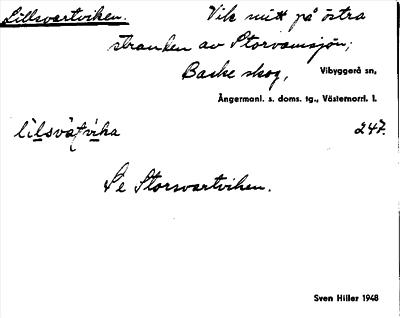 Lillsvartviken. Vik mitt på östra
stranden av Storvamsjön;
Baske skog, Vibyggerå sn,
Ångermanl. s. doms. tg., Västernorrl. l.
247.
Se Storsvartviken.
Sven Hiller 1948